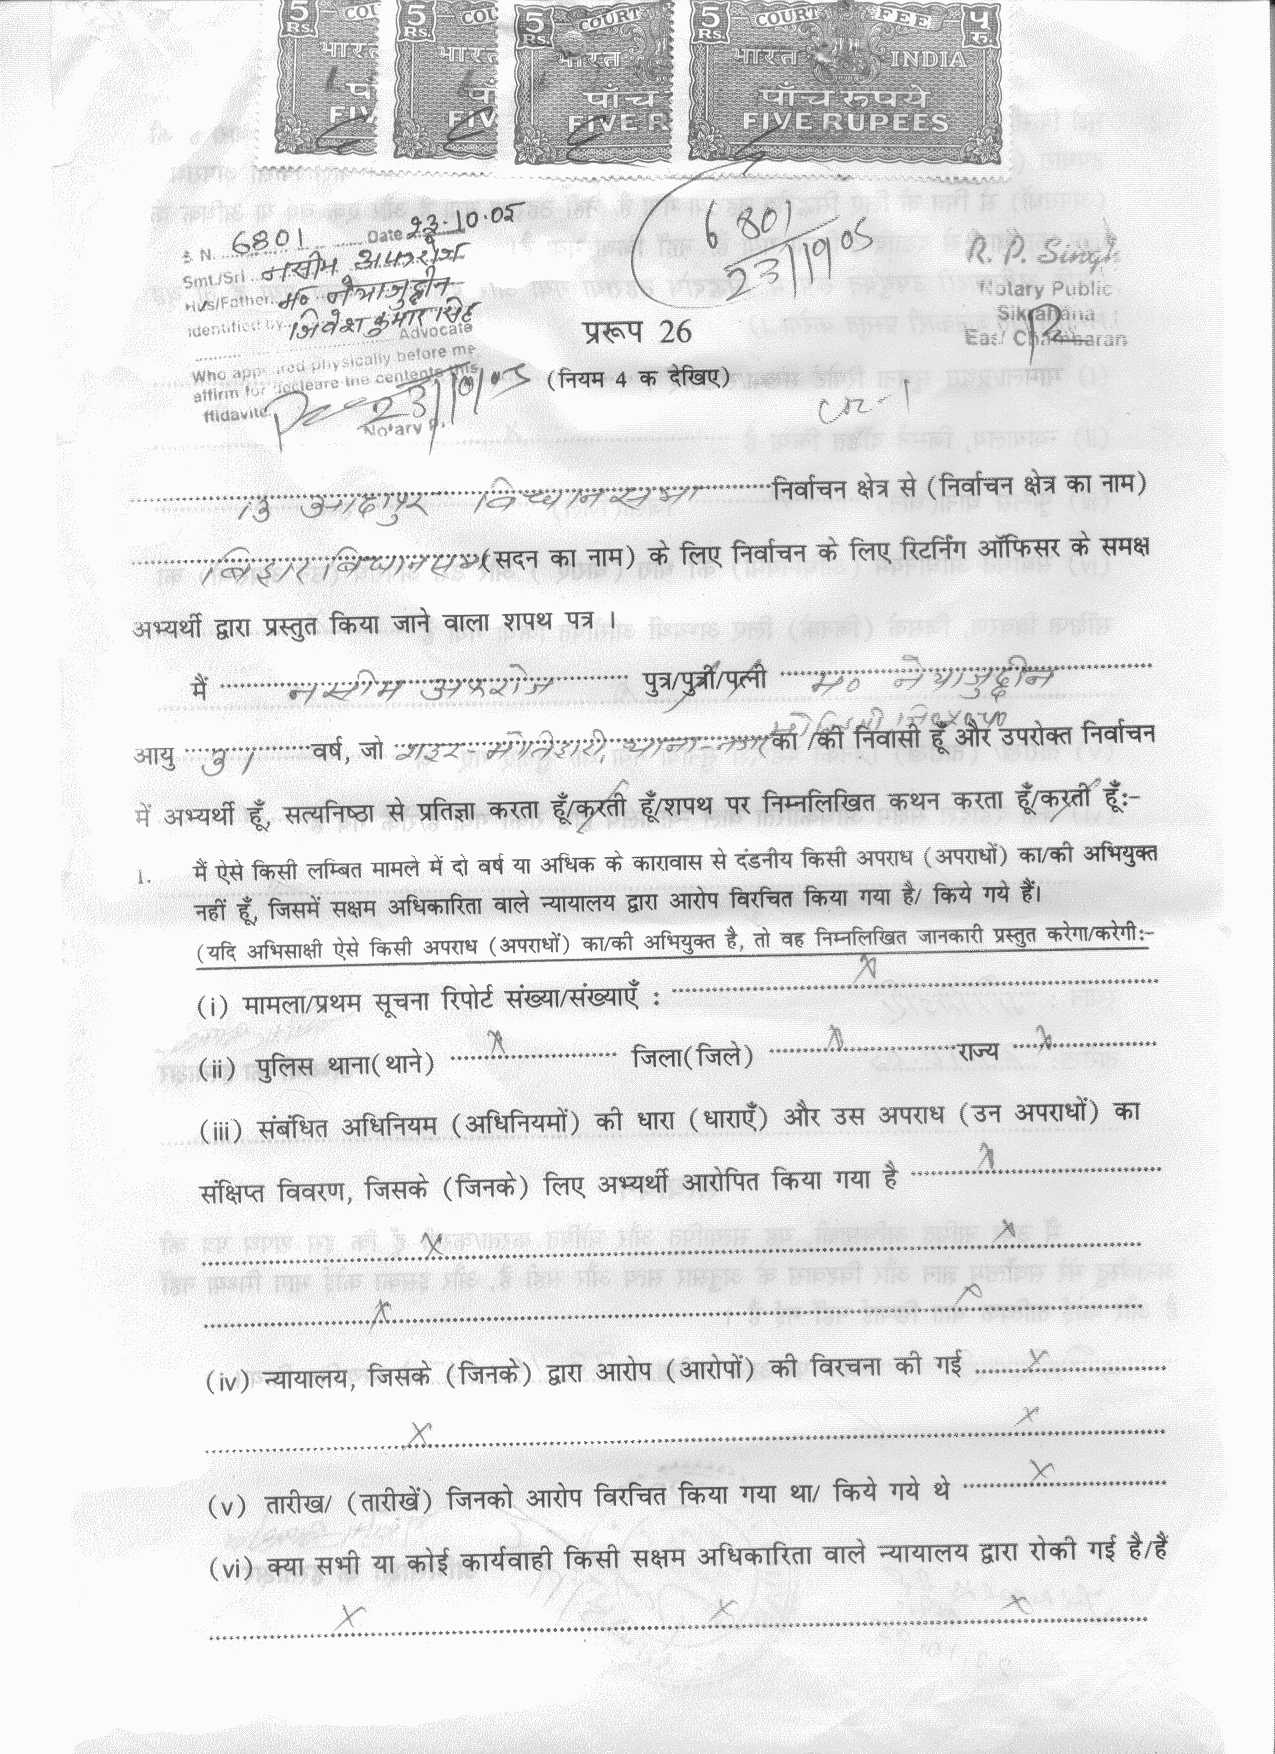 5 Rs. COU भारत पाँ FIV
5 Rs. COU भारत पाँ FIV
5 Rs. COURT भारत पाँच FIVE R
5 Rs. COURT FEE ५ रु. भारत INDIA पाँच रुपये FIVE RUPEES
S. N. 6801 Date 23.10.05
Smt./Sri नसीम अफरोज
Hus/Father. मो० नेयाजुद्दीन
Identified by जितेश कुमार सिंह
Advocate
Who appeared physically before me
affirm for decleare the centents this
ffidavite.
23/10/05
Notary P.
6801
23/10/05
R. P. Singh
Notary Public
Sikrahana
East Champaran
प्ररूप 26
(नियम 4 क देखिए)
13 आदापुर विधानसभा निर्वाचन क्षेत्र से (निर्वाचन क्षेत्र का नाम)
बिहार विधानसभा (सदन का नाम) के लिए निर्वाचन के लिए रिटर्निंग ऑफिसर के समक्ष
अभ्यर्थी द्वारा प्रस्तुत किया जाने वाला शपथ पत्र ।
मैं नसीम अफरोज पुत्र/पुत्री/पत्नी मो० नेयाजुद्दीन
आयु 31 वर्ष, जो शहर-मोतिहारी, थाना-नगर का /की निवासी हूँ और उपरोक्त निर्वाचन
में अभ्यर्थी हूँ, सत्यनिष्ठा से प्रतिज्ञा करता हूँ/करती हूँ/शपथ पर निम्नलिखित कथन करता हूँ/करती हूँ:-
1. मैं ऐसे किसी लम्बित मामले में दो वर्ष या अधिक के कारावास से दंडनीय किसी अपराध (अपराधों) का/की अभियुक्त
नहीं हूँ, जिसमें सक्षम अधिकारिता वाले न्यायालय द्वारा आरोप विरचित किया गया है/ किये गये हैं।
(यदि अभिसाक्षी ऐसे किसी अपराध (अपराधों) का/की अभियुक्त है, तो वह निम्नलिखित जानकारी प्रस्तुत करेगा/करेगी:-
(i) मामला/प्रथम सूचना रिपोर्ट संख्या/संख्याएँ : X
(ii) पुलिस थाना(थाने) X जिला(जिले) X राज्य X
(iii) संबंधित अधिनियम (अधिनियमों) की धारा (धाराएँ) और उस अपराध (उन अपराधों) का
संक्षिप्त विवरण, जिसके (जिनके) लिए अभ्यर्थी आरोपित किया गया है X
X X
X X
(iv) न्यायालय, जिसके (जिनके) द्वारा आरोप (आरोपों) की विरचना की गई X
X X
(v) तारीख/ (तारीखें) जिनको आरोप विरचित किया गया था/ किये गये थे X
(vi) क्या सभी या कोई कार्यवाही किसी सक्षम अधिकारिता वाले न्यायालय द्वारा रोकी गई है/हैं
X X X